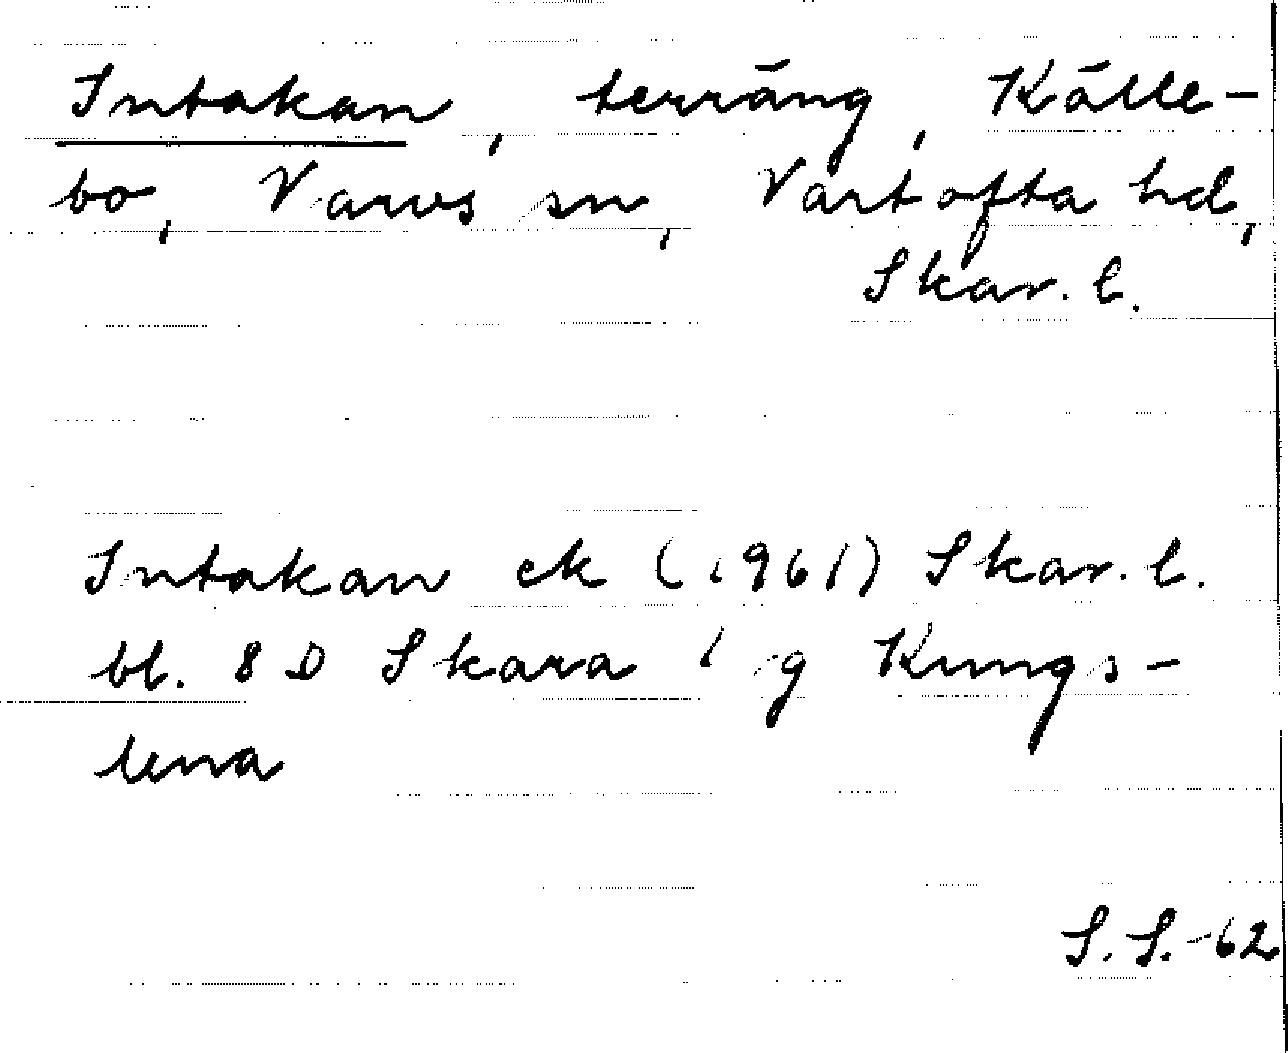 Intakan, terräng, Källe-
bo, Varvs sn, Vartofta hd,
Skar. l.
Intakan ek (1961) Skar. l.
bl. 8 D Skara 1 g Kungs-
lena
S. S. -62